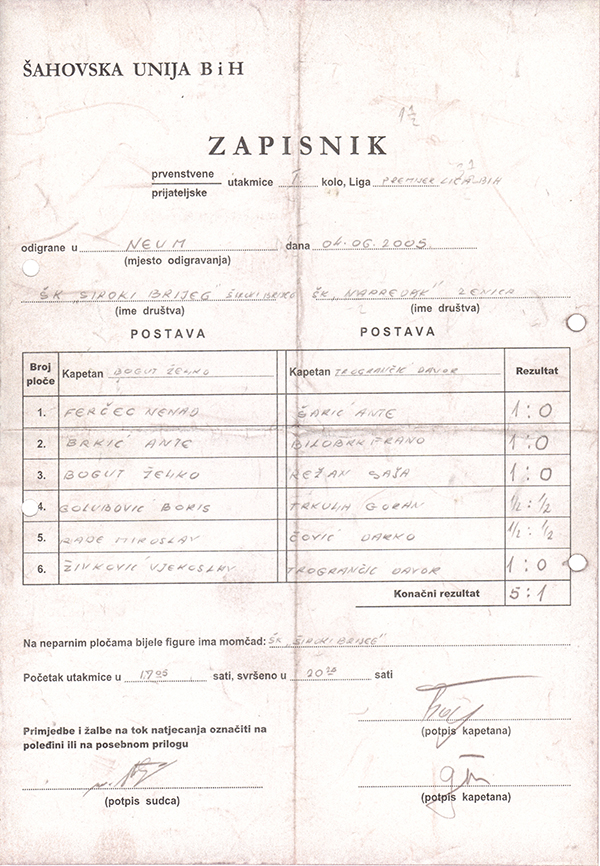 ŠAHOVSKA UNIJA B i H
ZAPISNIK
prvenstvene
prijateljske
utakmice I kolo, Liga PREMIJER LIGA BIH
odigrane u NEUM dana 04.06.2005.
(mjesto odigravanja)
ŠK "ŠIROKI BRIJEG" ŠIROKI BRIJEG ŠK "NAPREDAK" ZENICA
(ime društva) (ime društva)
POSTAVA POSTAVA
Broj ploče Kapetan BOGUT ŽELJKO Kapetan TROGRANČIĆ DAVOR Rezultat
1. FERČEC NENAD ŠARIĆ ANTE 1:0
2. BRKIĆ ANTE BILOBRK FRANO 1:0
3. BOGUT ŽELJKO REŽAN SAŠA 1:0
4. GOLUBOVIĆ BORIS TRKULJA GORAN ½:½
5. RADE MIROSLAV ČOVIĆ DARKO ½:½
6. ŽIVKOVIĆ VJEKOSLAV TROGRANČIĆ DAVOR 1:0
Konačni rezultat 5:1
Na neparnim pločama bijele figure ima momčad: ŠK "ŠIROKI BRIJEG"
Početak utakmice u 17.05 sati, svršeno u 20 sati
(potpis kapetana)
Primjedbe i žalbe na tok natjecanja označiti na
poleđini ili na posebnom prilogu
(potpis sudca) (potpis kapetana)